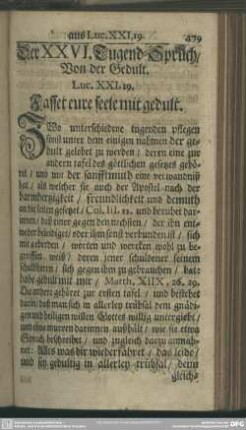 aus Luc. XXI, 19. 479
Der XXVI. Tugend-Spruch/
Von der Gedult.
Luc. XXI. 19.
Fasset eure seele mit gedult.
ZWo unterschiedene tugenden pflegen
sonst unter dem einigen nahmen der ge-
dult gelobet zu werden/ deren eine zur
andern tafel des göttlichen gesetzt gehö-
ret/ und mit der sanfftmuth eine verwandniß
hat/ als welcher sie auch der Apostel nach der
barmhertzigkeit/ freundlichkeit und demuth
an die seiten gesetzet/ Col. III. 12. und beruhet dar-
innen/ daß einer gegen den nechsten/ der ihn ent-
weder beleidiget/ oder ihm sonst verbunden ist/ sich
mit geberden/ worten und wercken wohl zu be-
greiffen weiß/ deren jener schuldener seinem
sich gegen ihm zu gebrauchen/ bat:
habe gedult mit mir/ Matth. XIIX, 26.
Die andere gehöret zur ersten tafel/ und bestehet
darin/ daß man sich in allerley trübsal dem gnädi-
gen und heiligen willen Gottes willig untergiebt/
und ohne murren darinnen außhält/ wie sie etwa
Sirach beschreibet/ und zugleich darzu anmah-
net: Alles was dir wiederfähret/ das leide/
und sey gedultig in allerley trübsal/ denn
gleich-